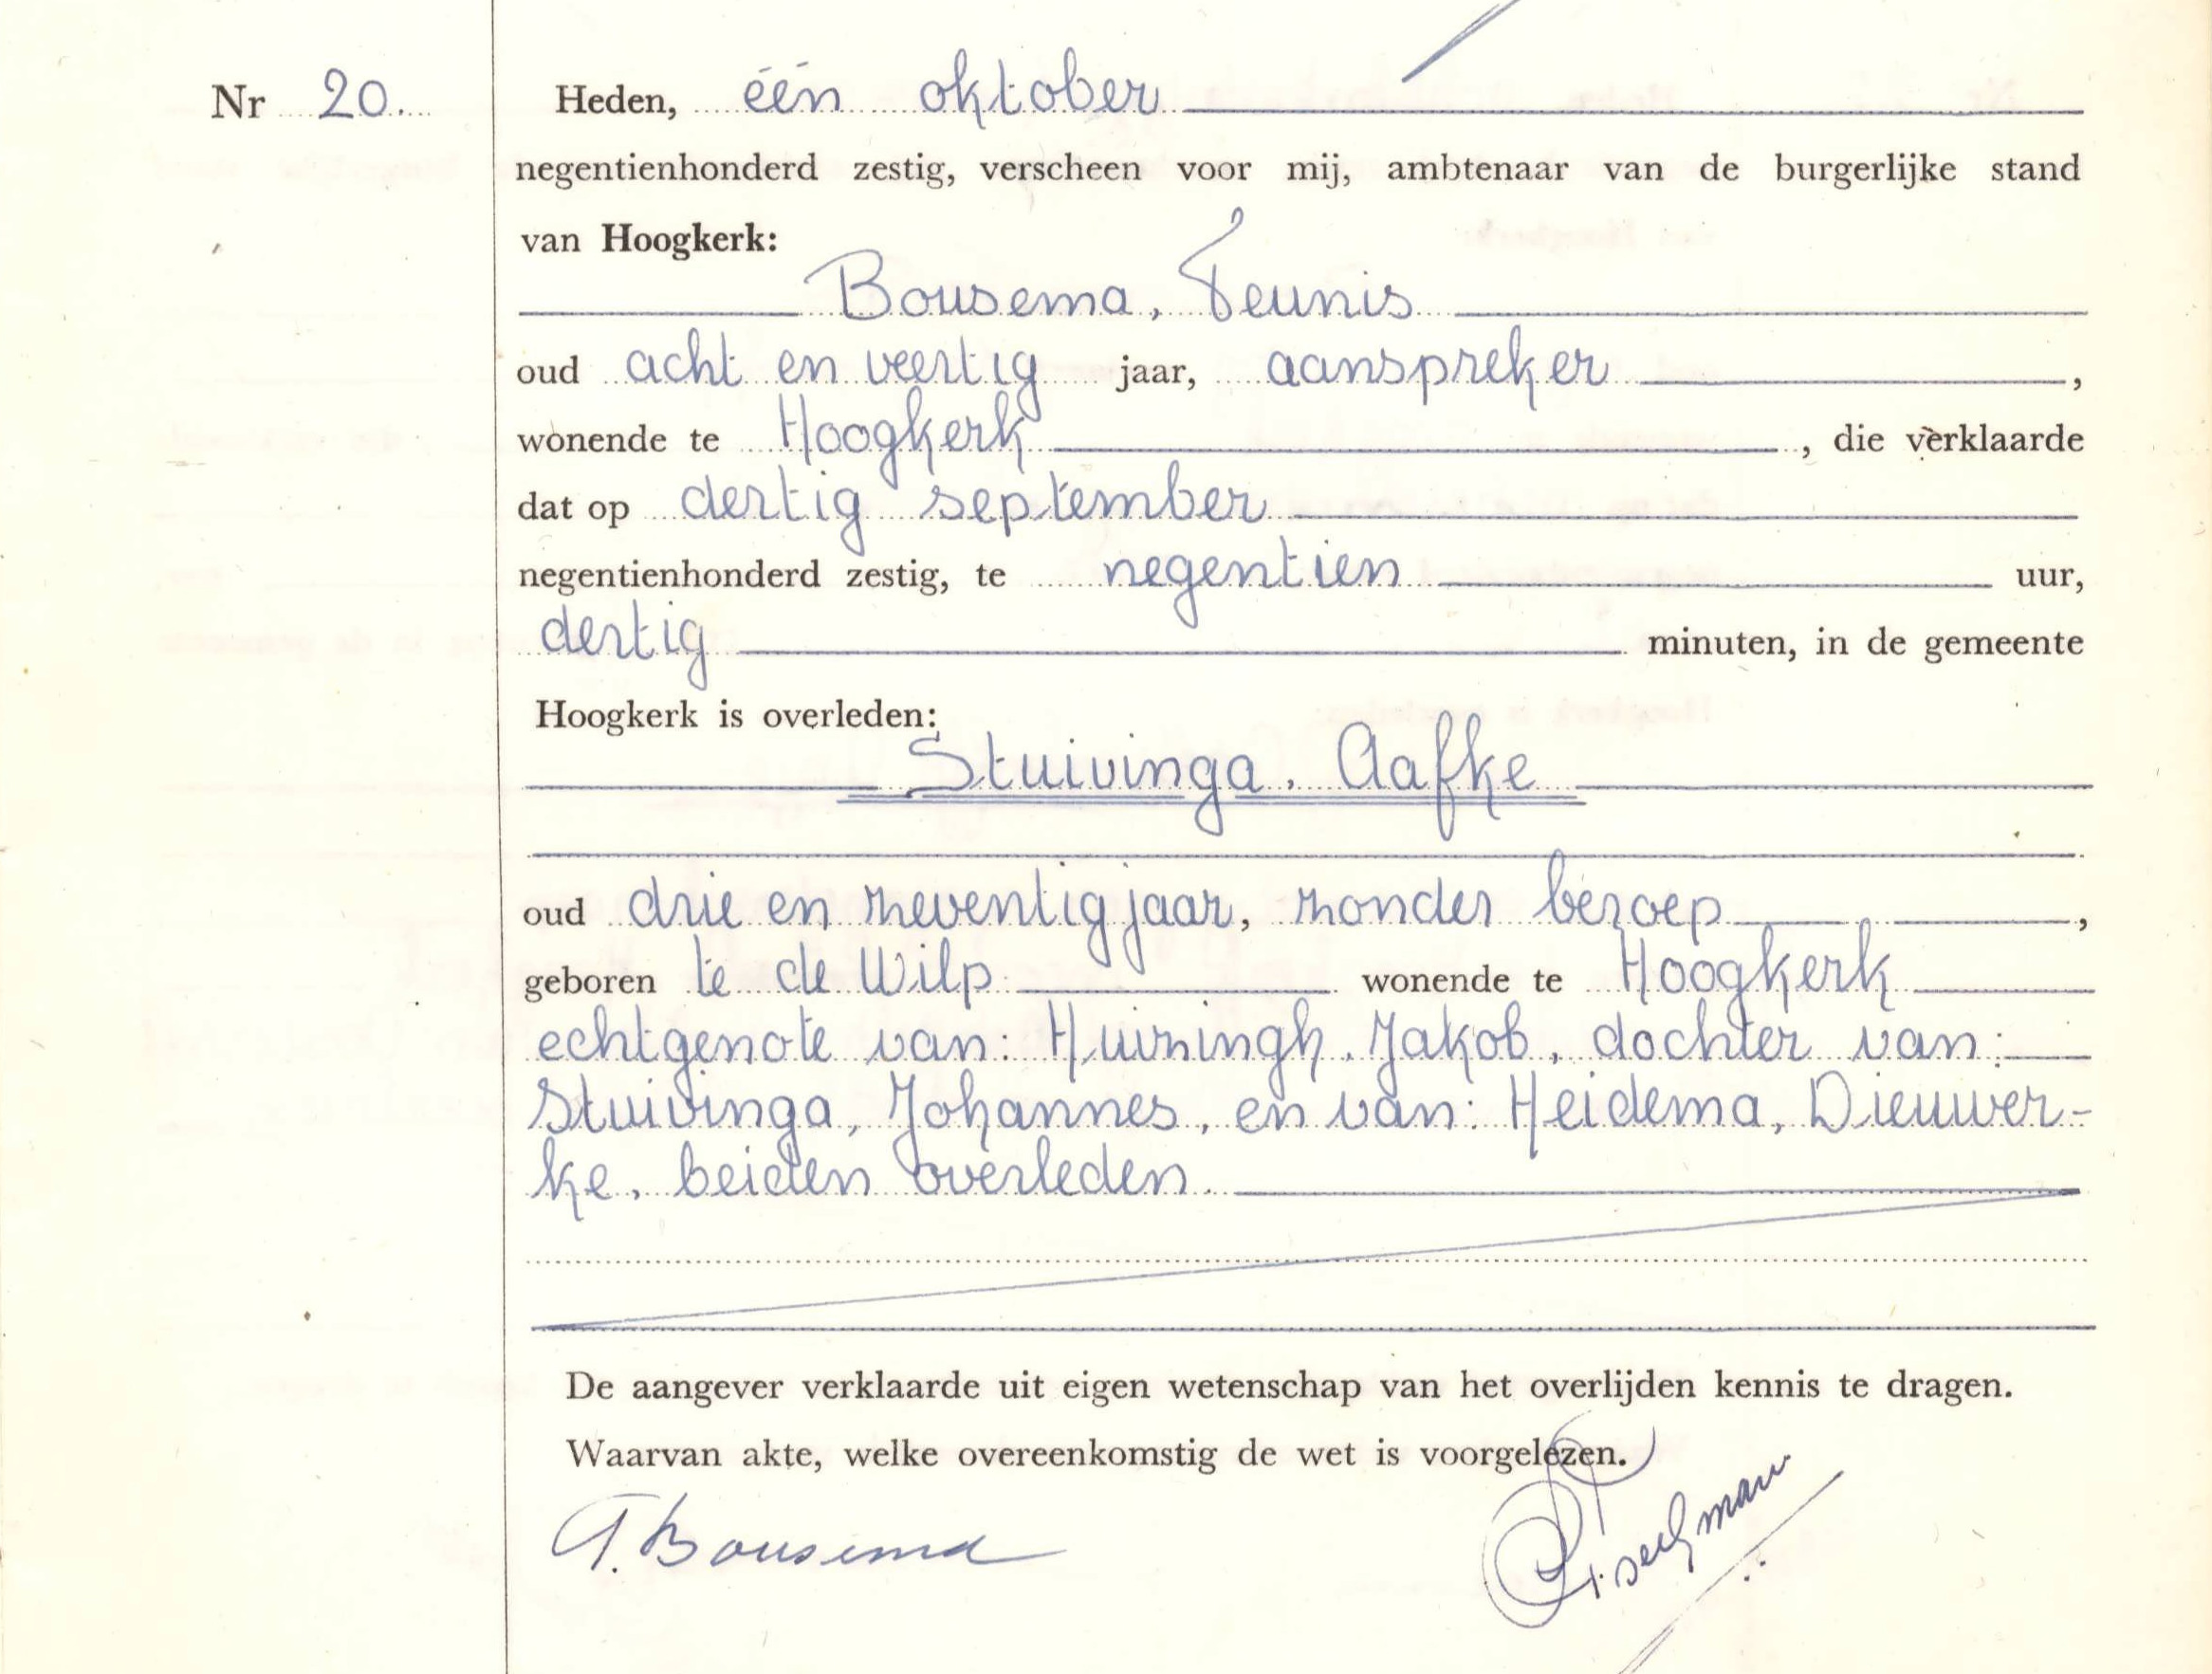 Nr 20. Heden, één oktober
negentienhonderd zestig, verscheen voor mij, ambtenaar van de burgerlijke stand
van Hoogkerk:
Bousema, Teunis
oud acht en veertig jaar, aanspreker ,
wonende te Hoogkerk , die verklaarde
dat op dertig september
negentienhonderd zestig, te negentien uur,
dertig minuten, in de gemeente
Hoogkerk is overleden:
Stuivinga, Aafke
oud drie en zeventig jaar, zonder beroep ,
geboren te de Wilp wonende te Hoogkerk
echtgenote van: Huizingh, Jakob, dochter van:
Stuivinga, Johannes, en van: Heidema, Dieuwer-
ke, beiden overleden.
De aangever verklaarde uit eigen wetenschap van het overlijden kennis te dragen.
Waarvan akte, welke overeenkomstig de wet is voorgelezen.
T. Bousema